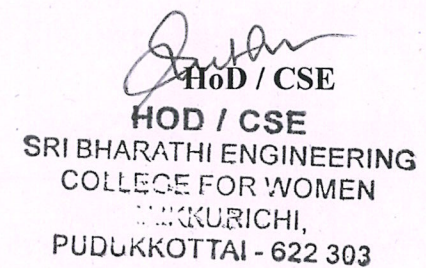 HoD / CSE
HOD / CSE
SRI BHARATHI ENGINEERING
COLLEGE FOR WOMEN
PUDUKKOTTAI - 622 303